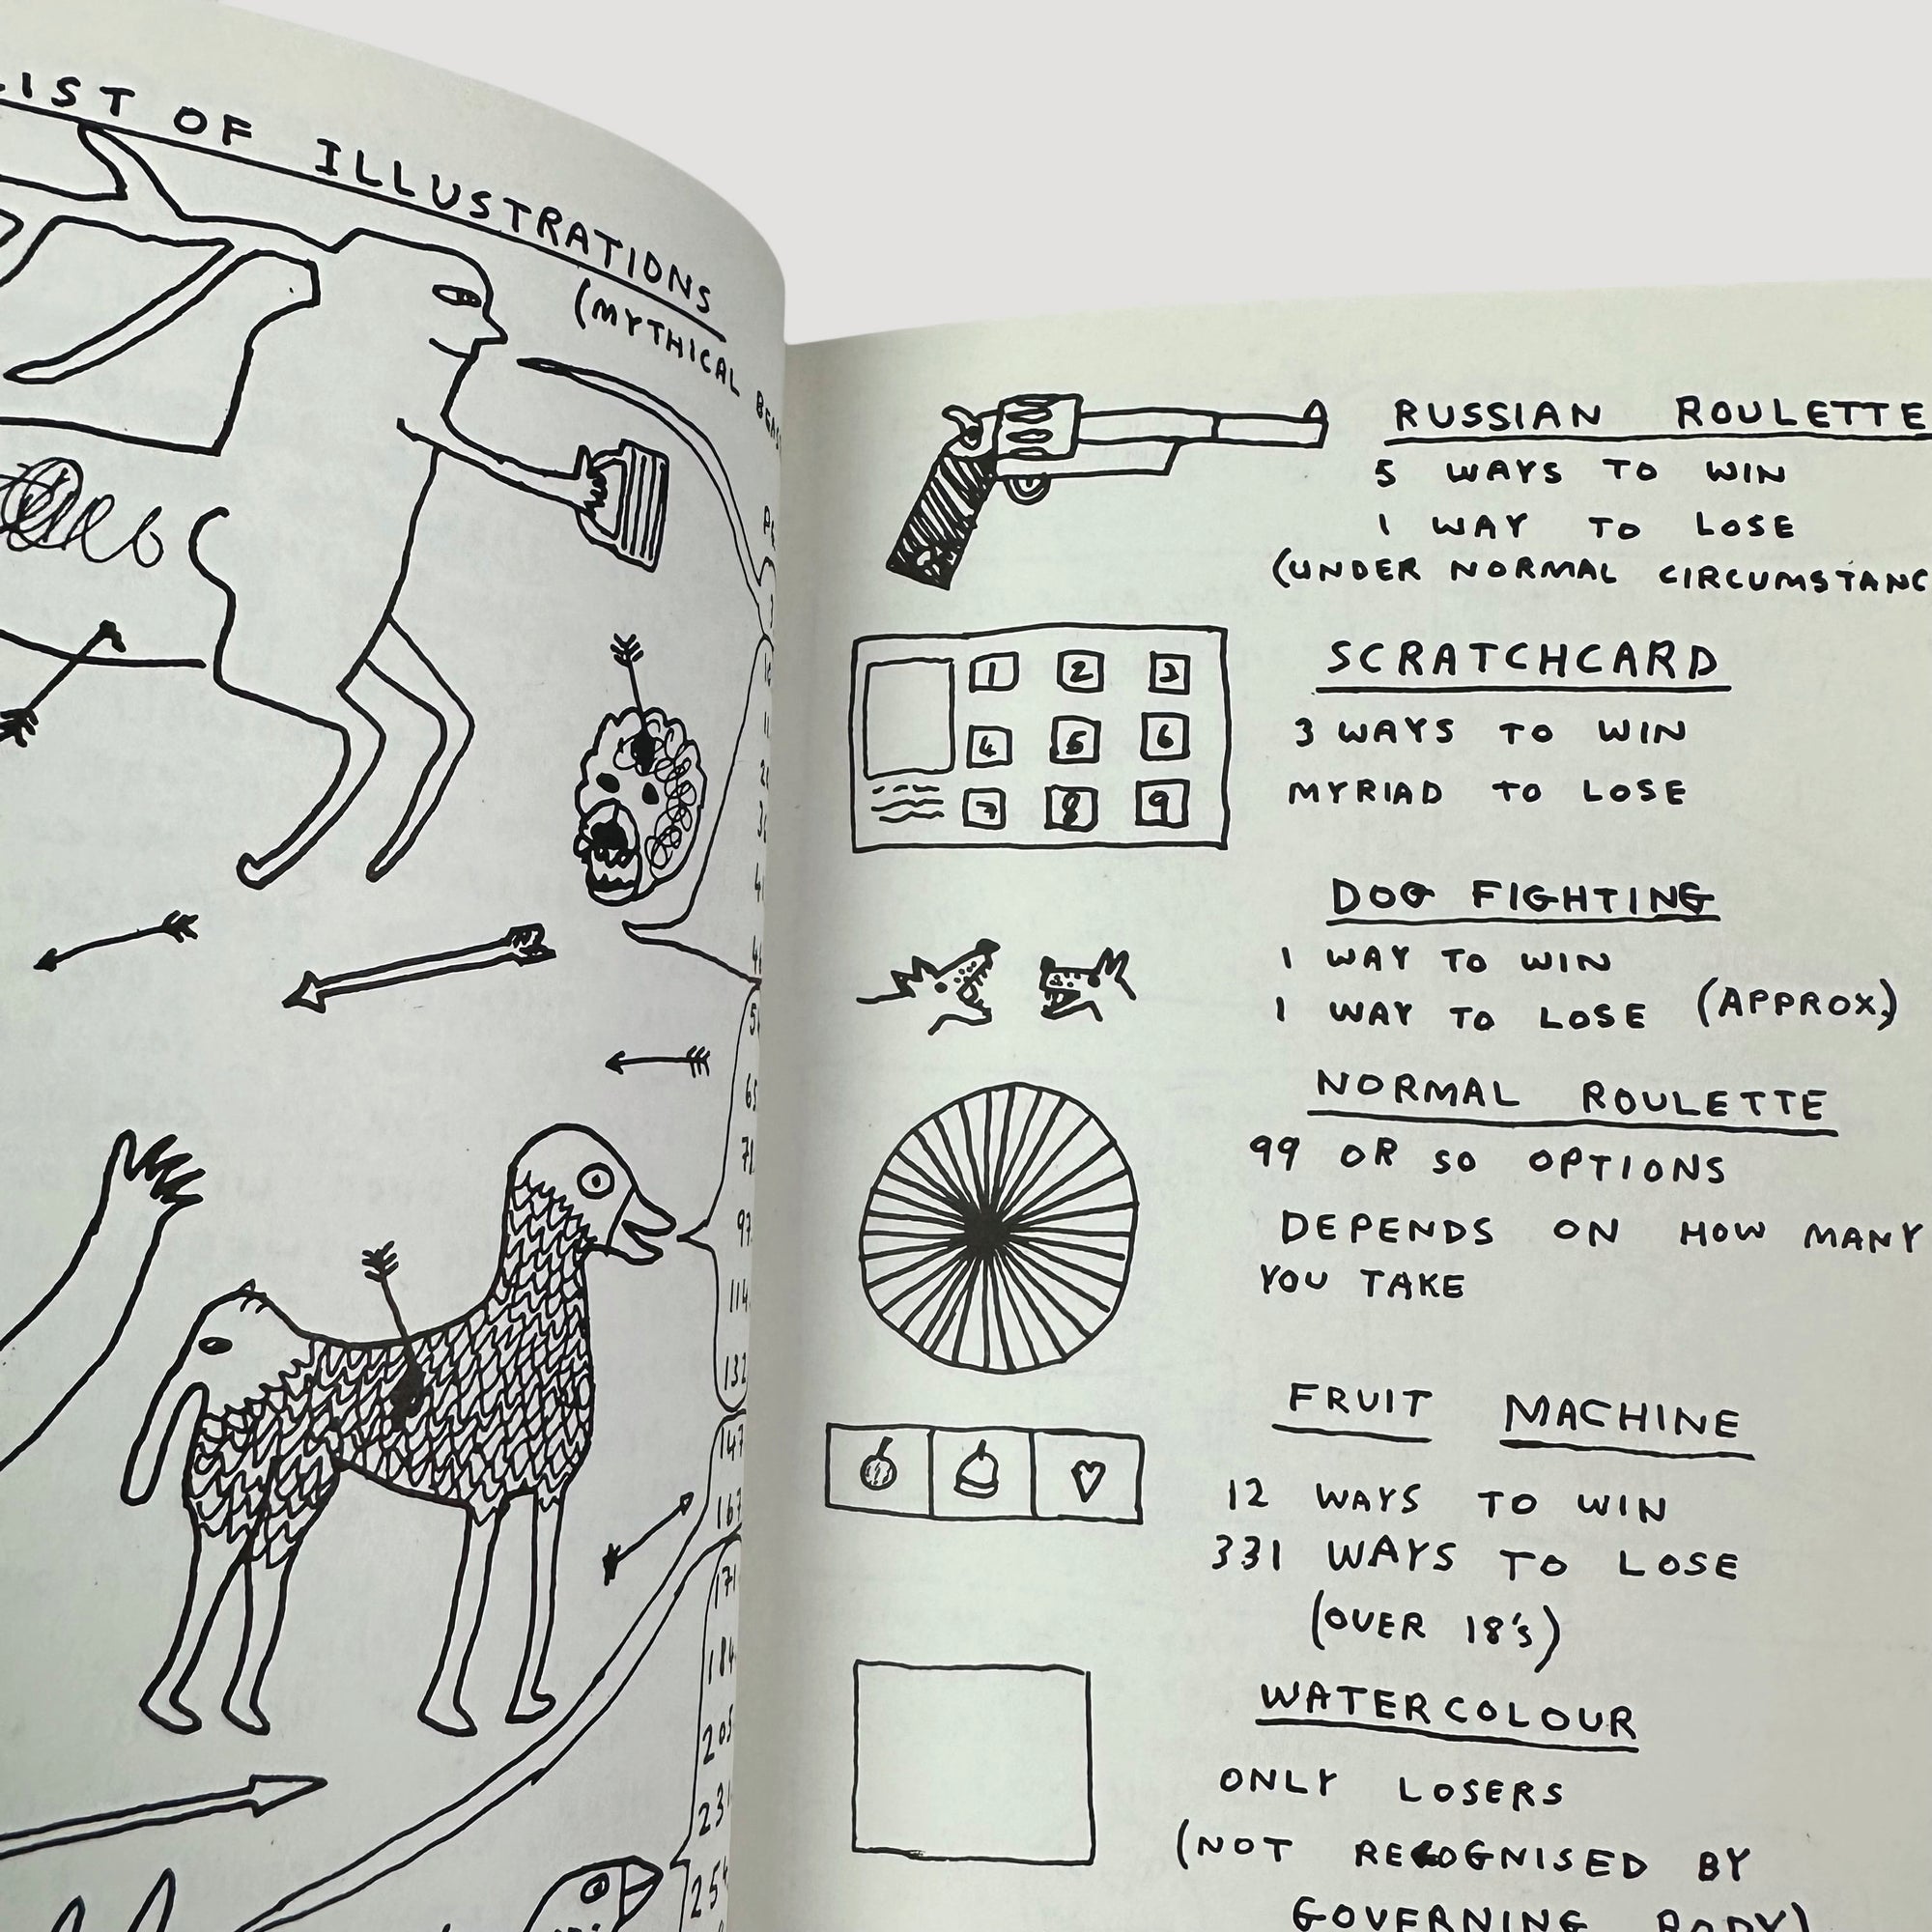 LIST OF ILLUSTRATIONS
(MYTHICAL
65
97
114
132
147
167
171
184
205
231
254
RUSSIAN ROULETTE
5 WAYS TO WIN
1 WAY TO LOSE
(UNDER NORMAL CIRCUMSTANC
1 2 3
4 5 6
7 8 9
SCRATCHCARD
3 WAYS TO WIN
MYRIAD TO LOSE
DOG FIGHTING
1 WAY TO WIN
1 WAY TO LOSE (APPROX)
NORMAL ROULETTE
99 OR SO OPTIONS
DEPENDS ON HOW MANY
YOU TAKE
FRUIT MACHINE
12 WAYS TO WIN
331 WAYS TO LOSE
(OVER 18's)
WATERCOLOUR
ONLY LOSERS
(NOT RECOGNISED BY
GOVERNING BODY)